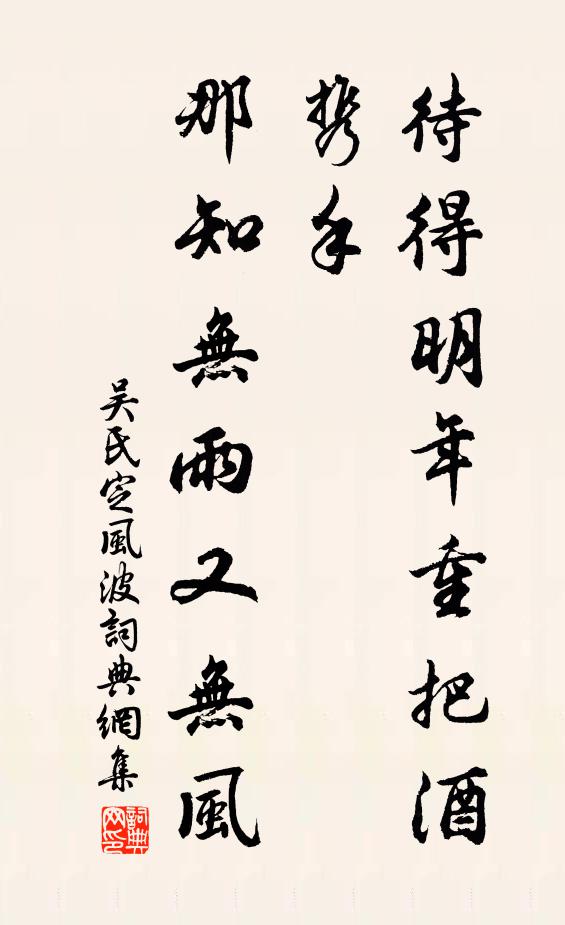 待得明年重把酒
携手
那知無雨又無風
吴氏定風波詞典網集
詞典網印